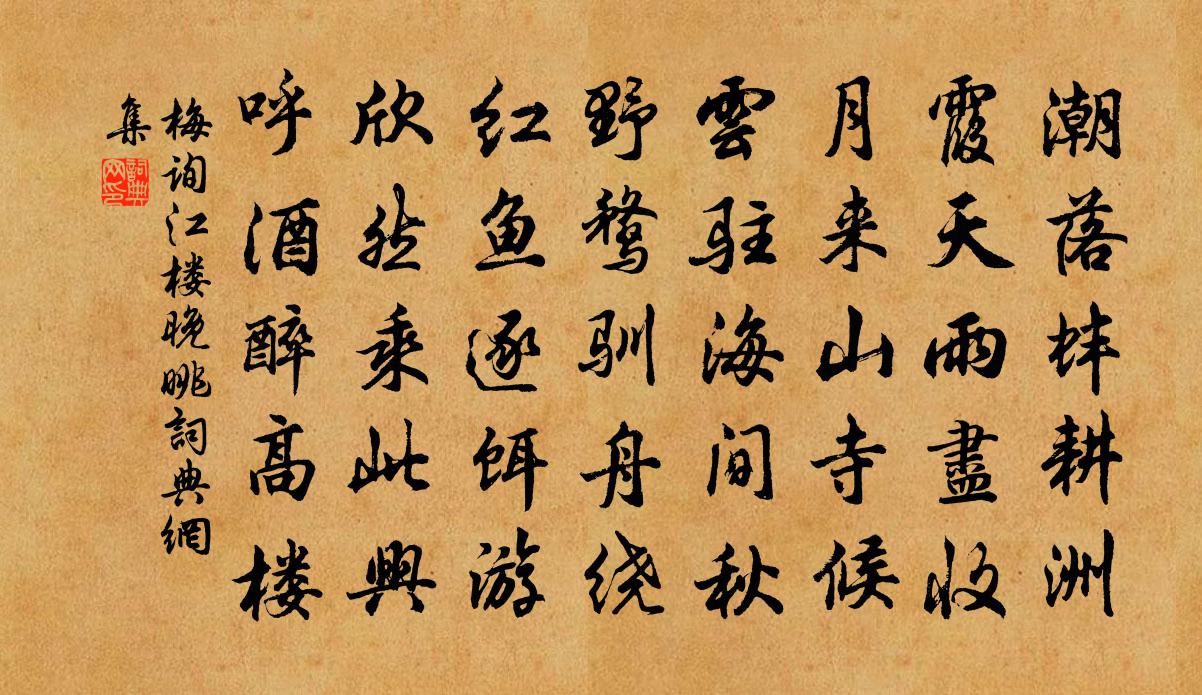 潮落蚌耕洲
霞天雨盡收
月来山寺候
雲驻海间秋
野鹜驯舟绕
红鱼逐饵游
欣然乘此興
呼酒醉高楼
梅询江楼晚眺詞典網
集
詞典
网印